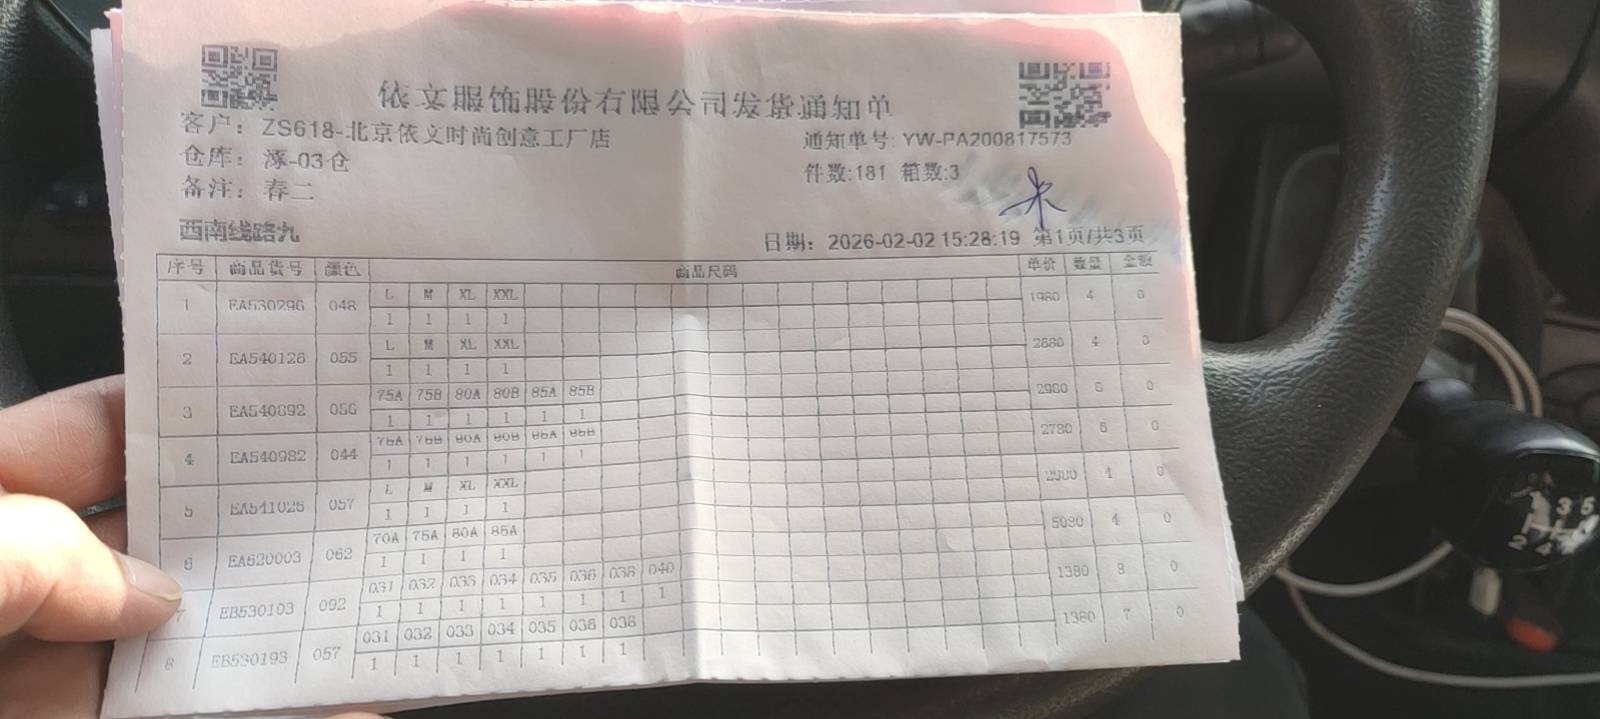 依文服饰股份有限公司发货通知单
客户： ZS618-北京依文时尚创意工厂店
通知单号: YW-PA200817573
仓库： 涿-03仓
件数:181 箱数:3
备注： 春二
西南线路九
日期： 2026-02-02 15:28:19 第1页/共3页
序号 商品货号 颜色 商品尺码 单价 数量 金额
L M XL XXL
1 EA530296 048 1980 4 0
1 1 1 1
L M XL XXL
2 EA540126 055 2680 4 0
1 1 1 1
75A 75B 80A 80B 85A 85B
3 EA540892 056 2980 6 0
1 1 1 1 1 1
75A 75B 80A 80B 85A 85B
4 EA540982 044 2780 6 0
1 1 1 1 1 1
L M XL XXL
5 EA541025 057 4 0
1 1 1 1
70A 75A 80A 85A
6 EA620003 062 5080 4 0
1 1 1 1
031 032 033 034 035 036 038 040
7 EB530103 092 1380 8 0
1 1 1 1 1 1 1 1
031 032 033 034 035 036 038
8 EB530193 057 1380 7 0
1 1 1 1 1 1 1
1 3 5
2 4